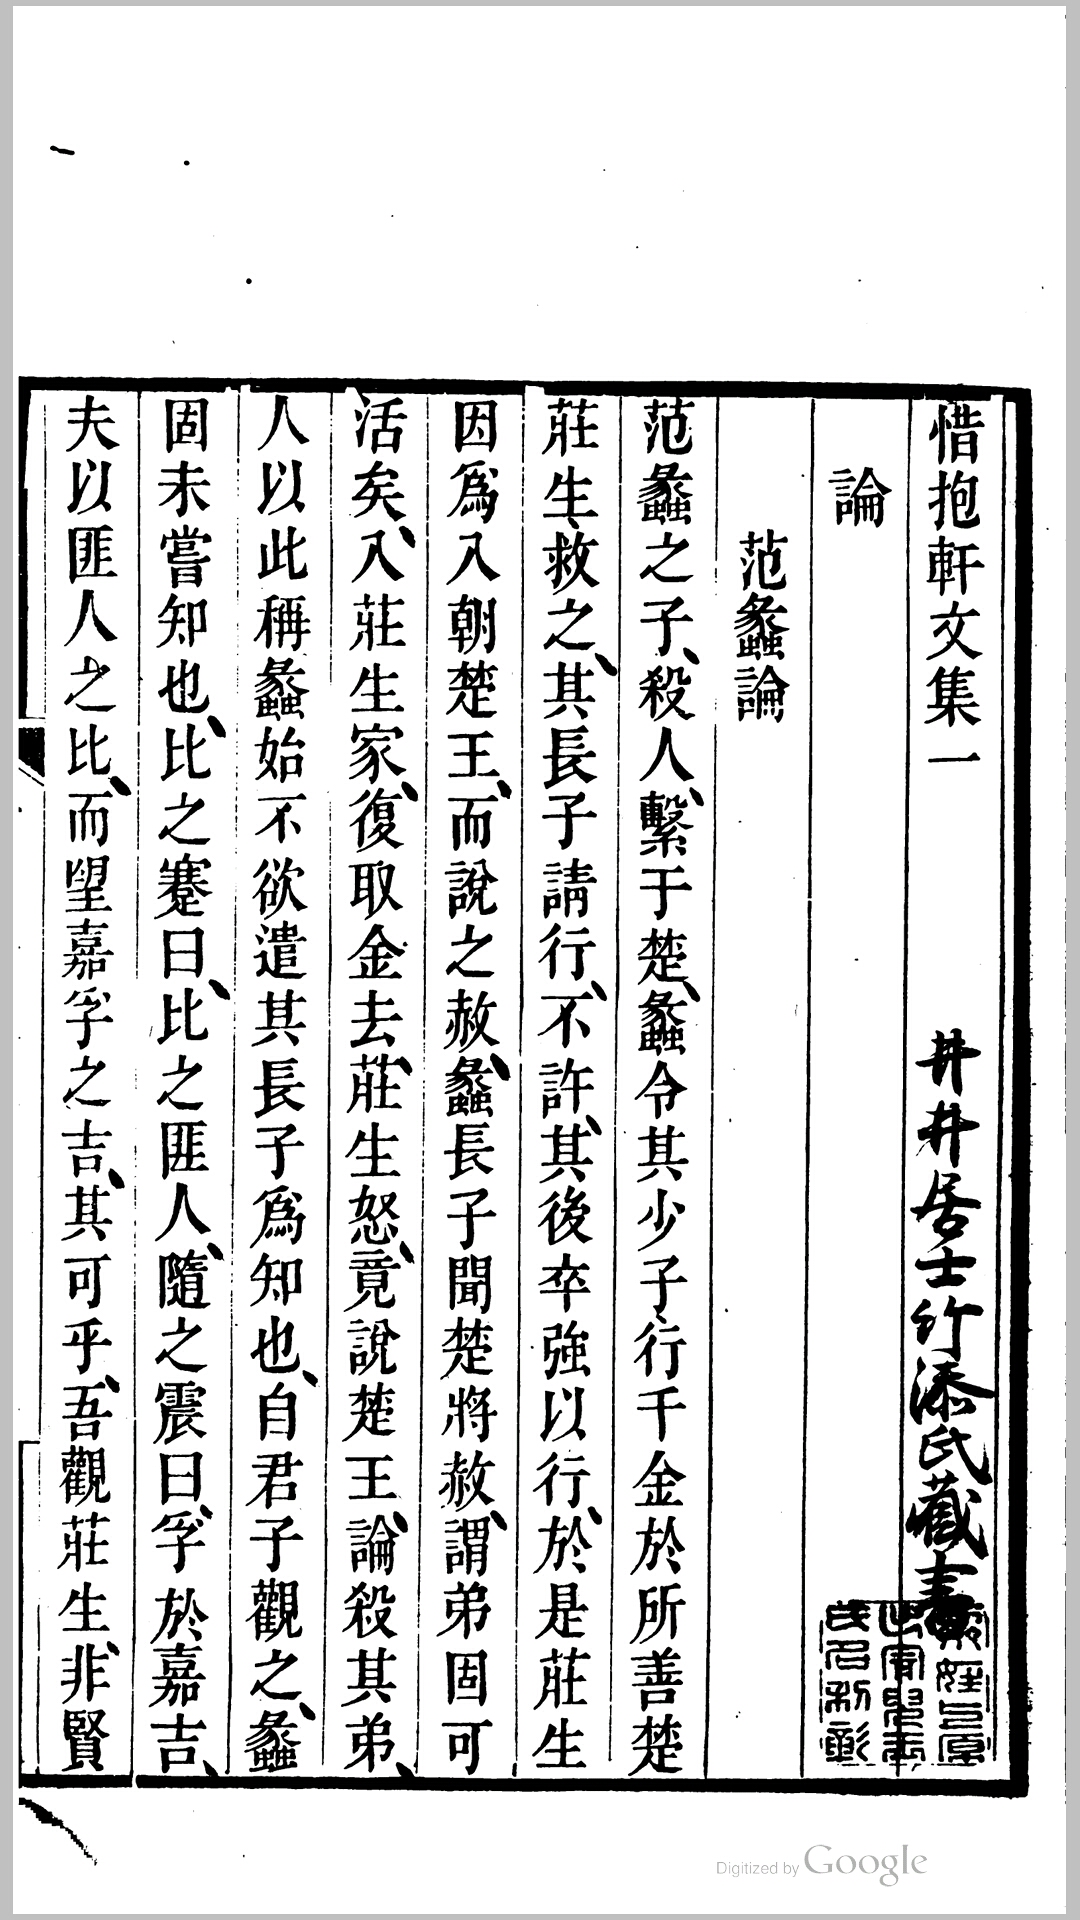 惜抱軒文集一
井井居士竹添氏藏書
論
范蠡論
范蠡之子、殺人、繫于楚、蠡令其少子、行千金於所善楚
莊生、救之、其長子請行、不許、其後卒強以行、於是莊生
因爲入朝楚王、而說之赦、蠡長子聞楚將赦、謂弟固可
活矣、入莊生家、復取金去、莊生怒、竟說楚王、論殺其弟、
人以此稱蠡始不欲遣其長子爲知也、自君子觀之、蠡
固未嘗知也、比之蹇曰、比之匪人、隨之震曰、孚於嘉吉、
夫以匪人之比、而望嘉孚之吉、其可乎、吾觀莊生、非賢
Digitized by Google